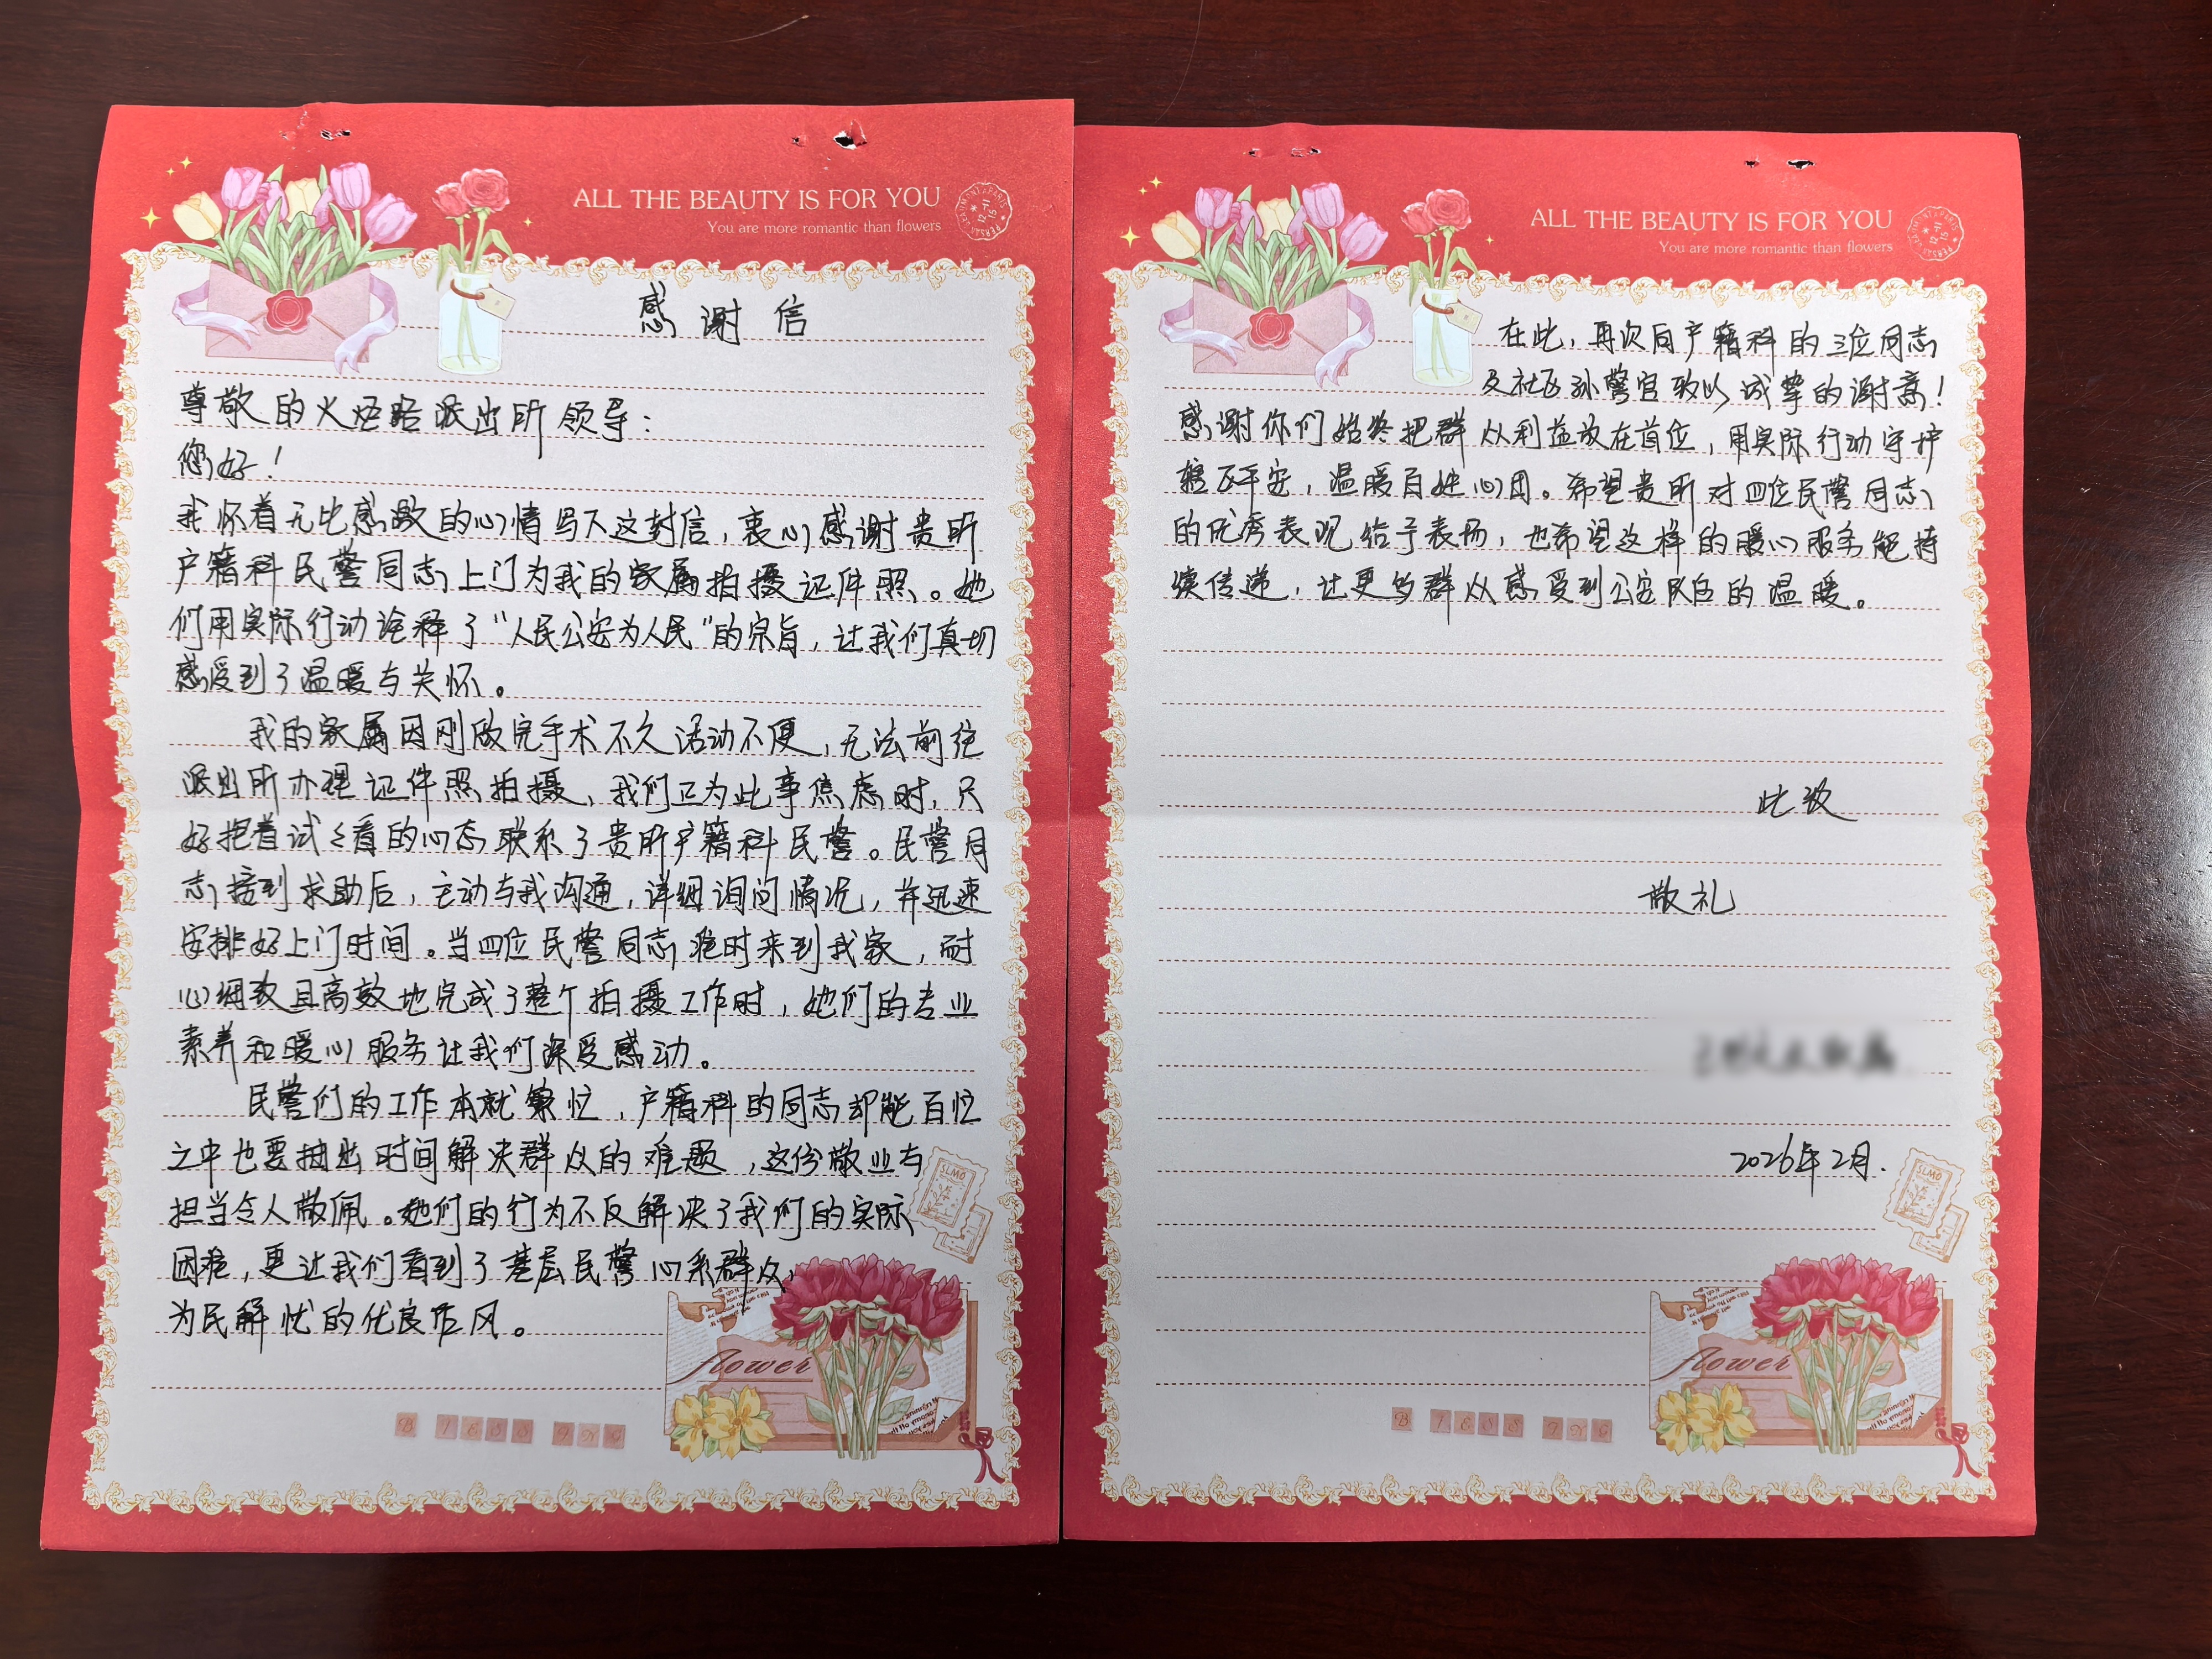 ALL THE BEAUTY IS FOR YOU
You are more romantic than flowers
感谢信
尊敬的火炬路派出所领导：
您好！
我怀着无比感激的心情写下这封信，衷心感谢贵所
户籍科民警同志上门为我的家属拍摄证件照。她
们用实际行动诠释了“人民公安为人民”的宗旨，让我们真切
感受到了温暖与关怀。
我的家属因刚做完手术不久活动不便，无法前往
派出所办理证件照拍摄，我们正为此事焦虑时，只
好抱着试々看的心态联系了贵所户籍科民警。民警同
志接到求助后，主动与我沟通，详细询问情况，并迅速
安排好上门时间。当四位民警同志准时来到我家，耐
心细致且高效地完成了整个拍摄工作时，她们的专业
素养和暖心服务让我们深受感动。
民警们的工作本就繁忙，户籍科的同志却能百忙
之中也要抽出时间解决群众的难题，这份敬业与
担当令人敬佩。她们的行为不仅解决了我们的实际
困难，更让我们看到了基层民警心系群众，
为民解忧的优良作风。
SLMO
flower
BIESS ING
ALL THE BEAUTY IS FOR YOU
You are more romantic than flowers
在此，再次向户籍科的三位同志
及社区孙警官致以诚挚的谢意！
感谢你们始终把群众利益放在首位，用实际行动守护
辖区平安，温暖百姓心田。希望贵所对四位民警同志
的优秀表现给予表扬，也希望这样的暖心服务能持
续传递，让更多群众感受到公安队伍的温暖。
此致
敬礼
2026年2月.
SLMO
flower
BIESS ING